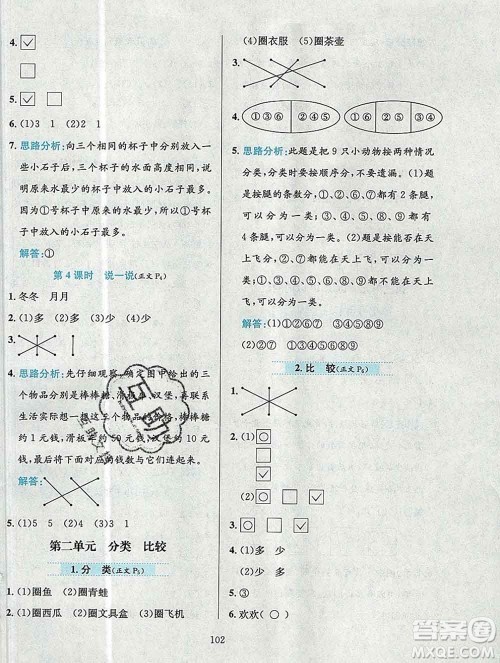 4. ☑
□
□
5. ☑ □ □
6. (1)3 1 (2)2 1
7. 思路分析:向三个相同的杯子中分别放入
一些小石子后,三个杯子的水面高度相同,说
明原来水最少的杯子中放入的小石子最多。
因为①号杯子中原来的水最少,所以①号杯
子中放入的小石子最多。
解答:①
第4课时 说一说(正文P₄)
1. 冬冬 月月
2. (1)少 (2)多 (3)少 (4)多
3.
4. 思路分析:先仔细观察,确定图中给出的三
个物品分别是棒棒糖、滑板车、汉堡,再联系
生活实际判断三个物品的大概价格,棒棒糖
大约1元钱,滑板车大约50元钱,汉堡大约10元
钱,最后对下面对应的钱数与它们连起来。
解答:
5. (1)5 5 (2)4 (3)3 1
第二单元 分类 比较
1. 分 类(正文P₅)
1. (1)圈鱼 (2)圈青蛙
2. (1)圈西瓜 (2)圈文具盒 (3)圈飞机
(4)圈衣服 (5)圈茶壶
3.
4. ①③⑥ ②④⑤ ①⑤⑥ ②③④
5. 思路分析:此题是把9只小动物按两种情况
分类,分类时要按顺序分,不要遗漏。(1)题
是按腿的条数分,①②⑥⑦都有2条腿,可
以分为一类;③④⑤⑧⑨都有
4条腿,可以分为一类。(2)题是按能否在天
上飞分,①⑥都能在天上飞,可以分为一
类;②③④⑤⑦⑧⑨都不能在天上飞,可以分
为一类。
解答:(1)①②⑥⑦ ③④⑤⑧⑨
(2)①⑥ ②③④⑤⑦⑧⑨
2. 比 较(正文P₆)
1.
2. (1)○
□
□
(2)□
○
☑
3. ○ □ ☑
4. (1)多 少 (2)多 少
5. ③
6. 欢欢(○)
102
答案圈
MXQE.COM